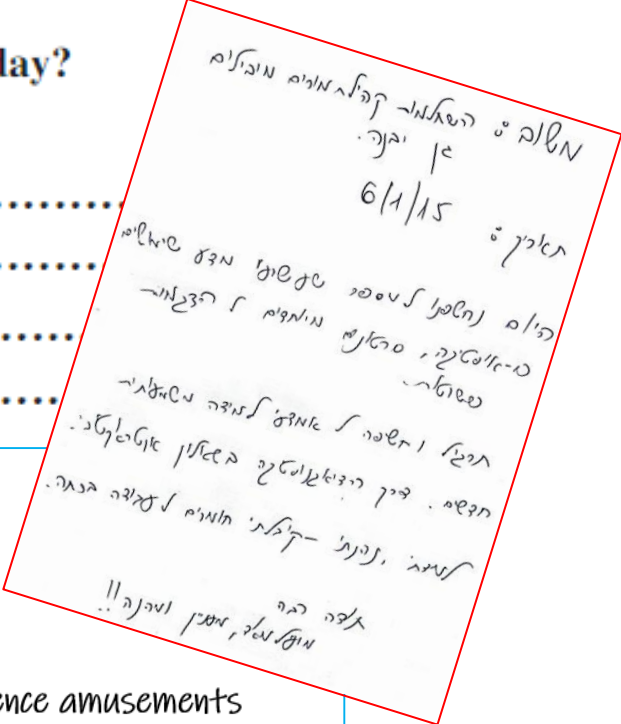 lay?
משוב : השתלמות קהילת מורים מובילים
גן יבנה.
תאריך : 6/1/15
היום נחשפנו למספר שעשועי מדע שימושיים
סרטונים מיוחדים להדגמות
פשוטות.
תרגול וחשיפה לאמצעי למידה משמעותית
חדשים. דרך
למדתי, נהנתי - קיבלתי חומרים לעבודה בכתה.
תודה רבה
מועיל מאד, מעניין ומהנה!!
ence amusements